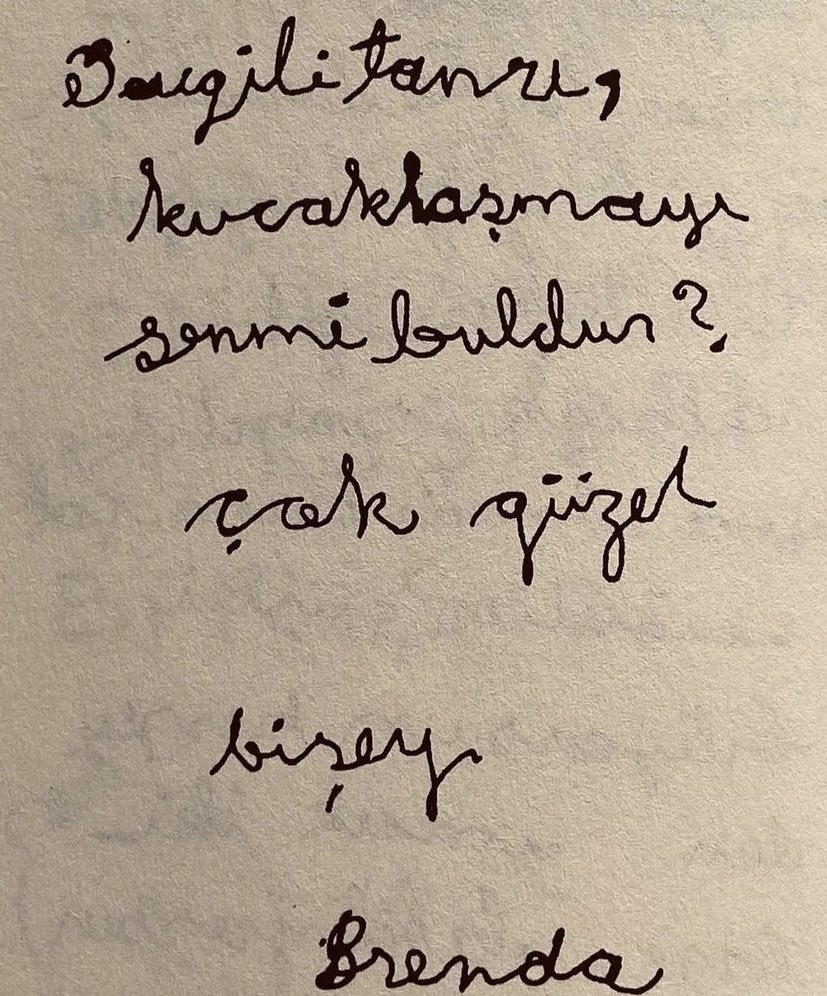 Sevgili tanrı,
kucaklaşmayı
senmi buldun?
çok güzel
bişey
Brenda